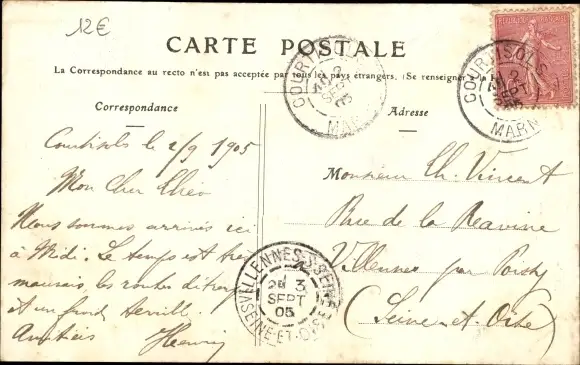 12€
CARTE POSTALE
La Correspondance au recto n'est pas acceptée par tous les pays étrangers. (Se renseigner à la
Correspondance
Adresse
REPUBLIQUE FRANÇAISE
COURTISOLS
2
SEPT
05
MARNE
COURTISOLS
2
SEPT
05
MARNE
Courtisols le 2/9 1905
Mon Cher Théo
Nous sommes arrivés ici
à Midi. Le temps est très
mauvais, les routes
et un fond
Amitiés Henry
Monsieur Ch. Vincent
Rue de la Ravine
Villennes par Poissy
(Seine-et-Oise)
VELLENNES-S-SEINE
3
SEPT
05
SEINE-ET-OISE